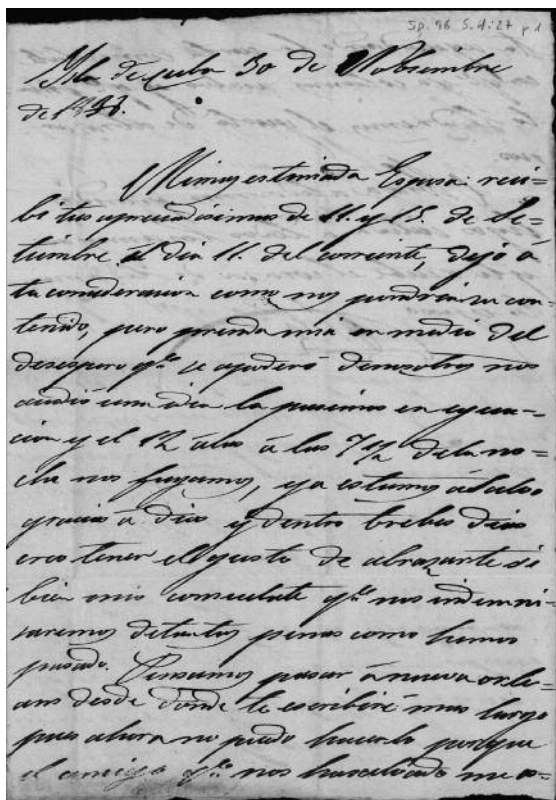 SD. 96 S. 4:27 p 1
Ysla de Cuba 30 de Nobiembre
de 18
Mi muy estimada Esposa: reci=
bi tus apreciadisimas de 11. y 15. de Se=
tiembre el dia 11. del corriente, dejo á
tu consideracion como nos pondria su con=
tenido, pero prenda mia en medio del
desespero qe. se apoderó de nosotros nos
acudió una idea la pusimos en ejecu=
cion y el 12 á las 7 1/2 de la no=
che nos fugamos, ya estamos á salvo
gracias á dios y dentro brebes dias
creo tener el gusto de abrazarte si
bien mio consuelate qe. nos indemni=
saremos de tantas penas como hemos
pasado. Pensamos pasar á nueva orle=
ans desde donde te escribiré mas largo
pues ahora no puedo hacerlo porque
el amigo qe. nos ha salbado me es=